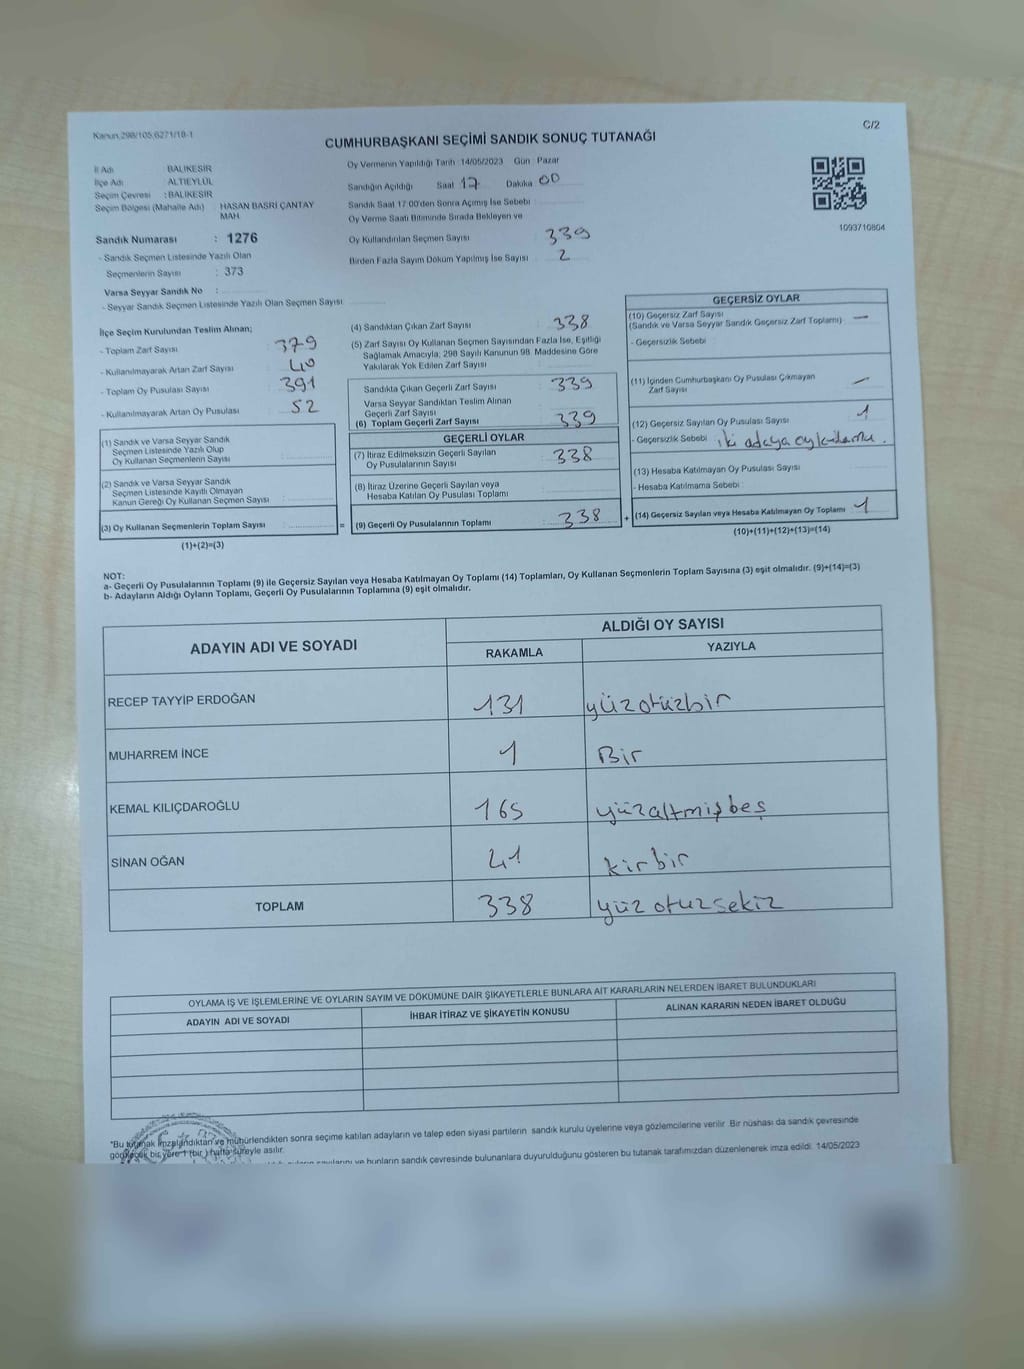 Kanun.298/105,6271/18-1
C/2
CUMHURBAŞKANI SEÇİMİ SANDIK SONUÇ TUTANAĞI
İl Adı BALIKESİR
İlçe Adı ALTIEYLÜL
Seçim Çevresi : BALIKESİR
Seçim Bölgesi (Mahalle Adı) HASAN BASRİ ÇANTAY MAH.
Sandık Numarası : 1276
- Sandık Seçmen Listesinde Yazılı Olan
Seçmenlerin Sayısı : 373
Varsa Seyyar Sandık No :
- Seyyar Sandık Seçmen Listesinde Yazılı Olan Seçmen Sayısı
Oy Vermenin Yapıldığı Tarih :14/05/2023 Gün : Pazar
Sandığın Açıldığı Saat 17 Dakika 00
Sandık Saat 17:00'den Sonra Açımış İse Sebebi
Oy Verme Saati Bitiminde Sırada Bekleyen ve
Oy Kullandırılan Seçmen Sayısı 339
Birden Fazla Sayım Döküm Yapılmış İse Sayısı 2
1093710804
İlçe Seçim Kurulundan Teslim Alınan;
- Toplam Zarf Sayısı 379
- Kullanılmayarak Artan Zarf Sayısı 40
- Toplam Oy Pusulası Sayısı 391
- Kullanılmayarak Artan Oy Pusulası 52
(1) Sandık ve Varsa Seyyar Sandık
Seçmen Listesinde Yazılı Olup
Oy Kullanan Seçmenlerin Sayısı
(2) Sandık ve Varsa Seyyar Sandık
Seçmen Listesinde Kayıtlı Olmayan
Kanun Gereği Oy Kullanan Seçmen Sayısı
(3) Oy Kullanan Seçmenlerin Toplam Sayısı : =
(1)+(2)=(3)
(4) Sandıktan Çıkan Zarf Sayısı : 338
(5) Zarf Sayısı Oy Kullanan Seçmen Sayısından Fazla İse, Eşitliği
Sağlamak Amacıyla, 298 Sayılı Kanunun 98. Maddesine Göre
Yakılarak Yok Edilen Zarf Sayısı
Sandıkta Çıkan Geçerli Zarf Sayısı : 339
Varsa Seyyar Sandıktan Teslim Alınan
Geçerli Zarf Sayısı
(6) Toplam Geçerli Zarf Sayısı : 339
GEÇERLİ OYLAR
(7) İtiraz Edilmeksizin Geçerli Sayılan
Oy Pusulalarının Sayısı : 338
(8) İtiraz Üzerine Geçerli Sayılan veya
Hesaba Katılan Oy Pusulası Toplamı
(9) Geçerli Oy Pusulalarının Toplamı : 338 +
GEÇERSİZ OYLAR
(10) Geçersiz Zarf Sayısı
(Sandık ve Varsa Seyyar Sandık Geçersiz Zarf Toplamı) : —
- Geçersizlik Sebebi
(11) İçinden Cumhurbaşkanı Oy Pusulası Çıkmayan
Zarf Sayısı —
(12) Geçersiz Sayılan Oy Pusulası Sayısı 1
- Geçersizlik Sebebi iki adaya oy
(13) Hesaba Katılmayan Oy Pusulası Sayısı
- Hesaba Katılmama Sebebi :
(14) Geçersiz Sayılan veya Hesaba Katılmayan Oy Toplamı 1
(10)+(11)+(12)+(13)=(14)
NOT:
a- Geçerli Oy Pusulalarının Toplamı (9) ile Geçersiz Sayılan veya Hesaba Katılmayan Oy Toplamı (14) Toplamları, Oy Kullanan Seçmenlerin Toplam Sayısına (3) eşit olmalıdır. (9)+(14)=(3)
b- Adayların Aldığı Oyların Toplamı, Geçerli Oy Pusulalarının Toplamına (9) eşit olmalıdır.
ADAYIN ADI VE SOYADI
ALDIĞI OY SAYISI
RAKAMLA YAZIYLA
RECEP TAYYİP ERDOĞAN 131 yüzotüzbir
MUHARREM İNCE 1 Bir
KEMAL KILIÇDAROĞLU 165 yüzaltmişbeş
SİNAN OĞAN 41 kirbir
TOPLAM 338 yüz otuzsekiz
OYLAMA İŞ VE İŞLEMLERİNE VE OYLARIN SAYIM VE DÖKÜMÜNE DAİR ŞİKAYETLERLE BUNLARA AİT KARARLARIN NELERDEN İBARET BULUNDUKLARI
ADAYIN ADI VE SOYADI İHBAR İTİRAZ VE ŞİKAYETİN KONUSU ALINAN KARARIN NEDEN İBARET OLDUĞU
*Bu tutanak imzalandıktan ve mühürlendikten sonra seçime katılan adayların ve talep eden siyasi partilerin sandık kurulu üyelerine veya gözlemcilerine verilir. Bir nüshası da sandık çevresinde
görülecek bir yere 1 (bir ) hafta süreyle asılır.
ve bunların sandık çevresinde bulunanlara duyurulduğunu gösteren bu tutanak tarafımızdan düzenlenerek imza edildi. 14/05/2023